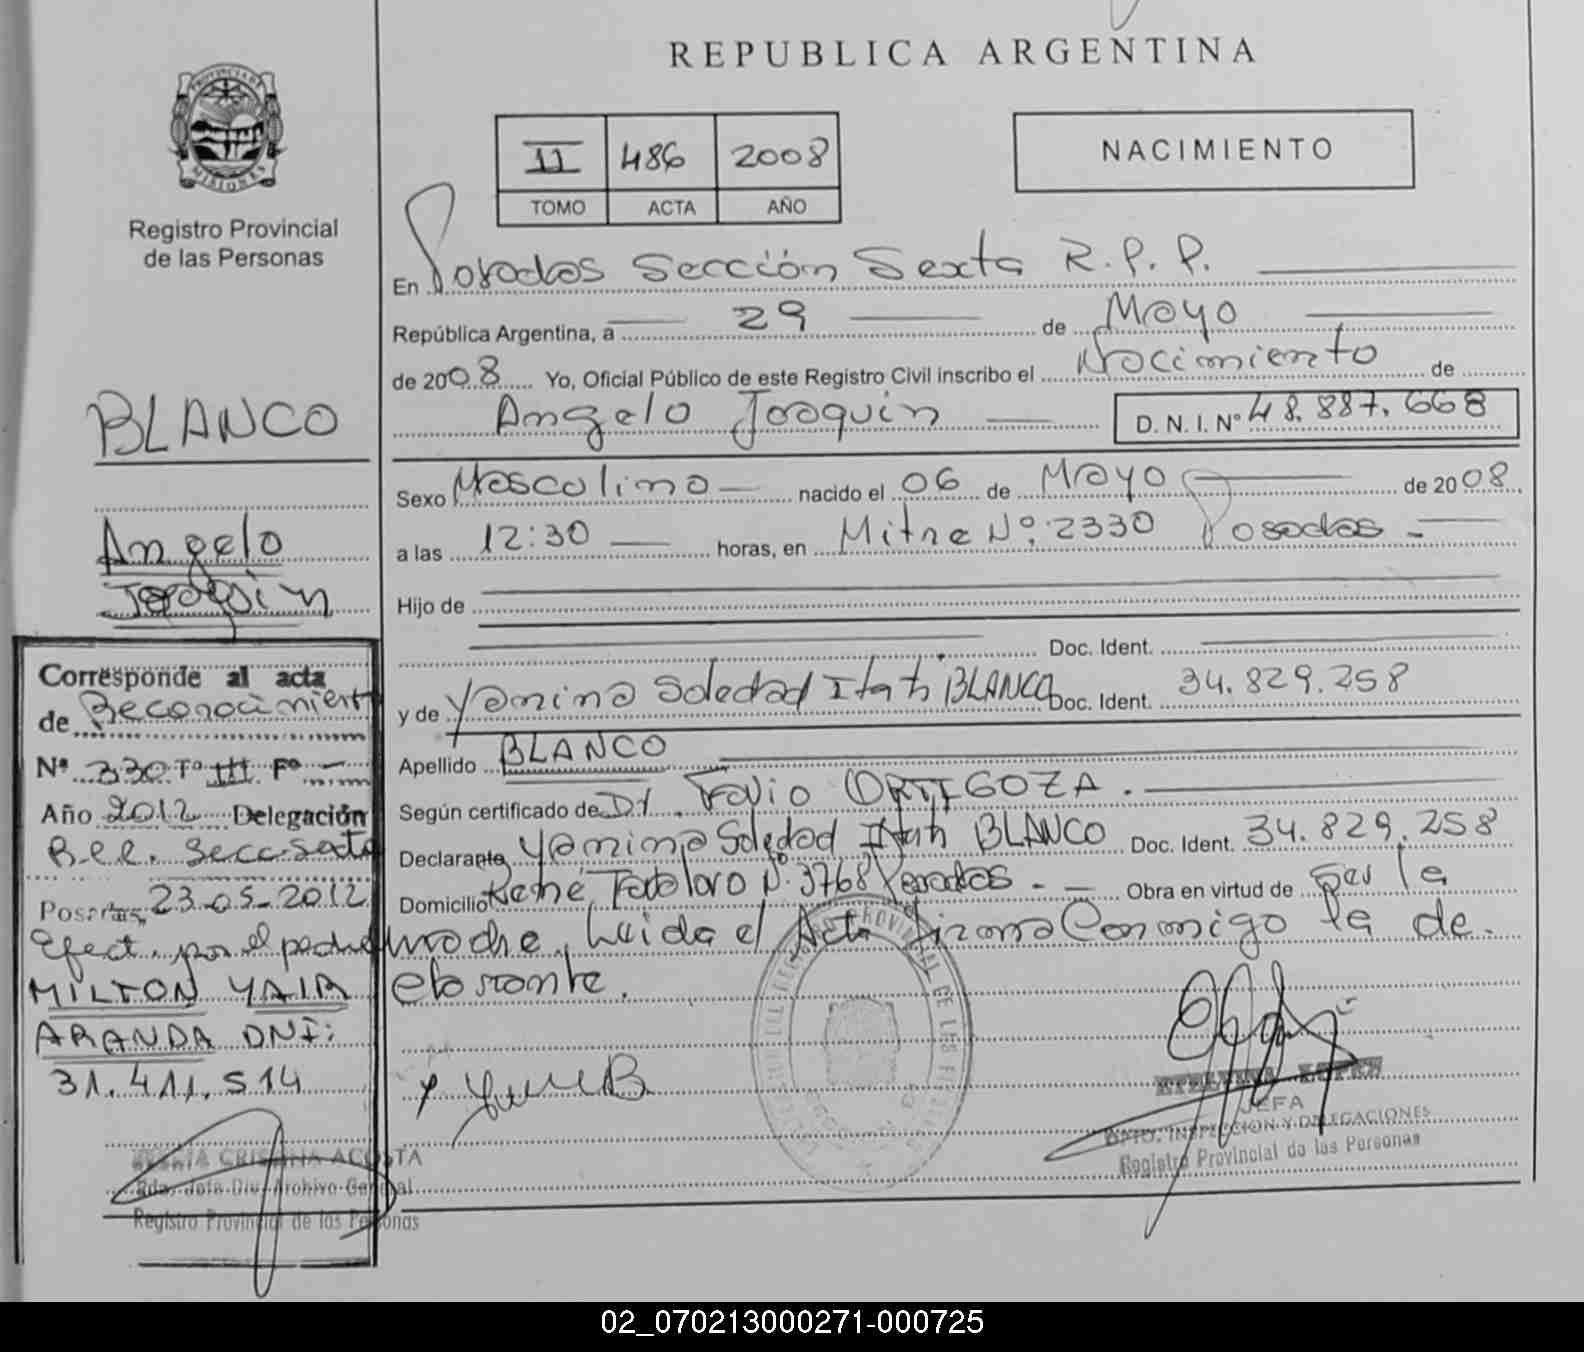 REPUBLICA ARGENTINA
PROVINCIA DE
MISIONES
Registro Provincial
de las Personas
II 486 2008
TOMO ACTA AÑO
NACIMIENTO
En Posadas Sección Sexta R.P.P.
República Argentina, a 29 de Mayo
de 2008 Yo, Oficial Público de este Registro Civil inscribo el Nacimiento de
Angelo Joaquin D. N. I. Nº 48.887.668
BLANCO
Angelo
Joaquin
Sexo Masculino nacido el 06 de Mayo de 2008
a las 12:30 horas, en Mitre Nº 2330 Posadas
Hijo de
Doc. Ident.
y de Yanina Soledad Itati BLANCO Doc. Ident. 34.829.258
Apellido BLANCO
Según certificado de Dr. Favio ORTIGOZA.
Declarante Yanina Soledad Itati BLANCO Doc. Ident. 34.829.258
Domicilio René Nº 3768 Posadas. Obra en virtud de Ser la
madre. Leida el Acta firma Conmigo la de-
clarante.
Corresponde al acta
de Reconocimiento
Nº 330 Tº III Fº -
Año 2012 Delegación
Secc. Sexta
Posadas, 23-05-2012
Efect. por el padre
MILTON YAIR
ARANDA DNI:
31.411.514
MARIA CRISTINA ACOSTA
Jefa Div. Archivo General
Registro Provincial de las Personas
JEFA
DPTO. INSPECCION Y DELEGACIONES
Registro Provincial de las Personas
02_070213000271-000725